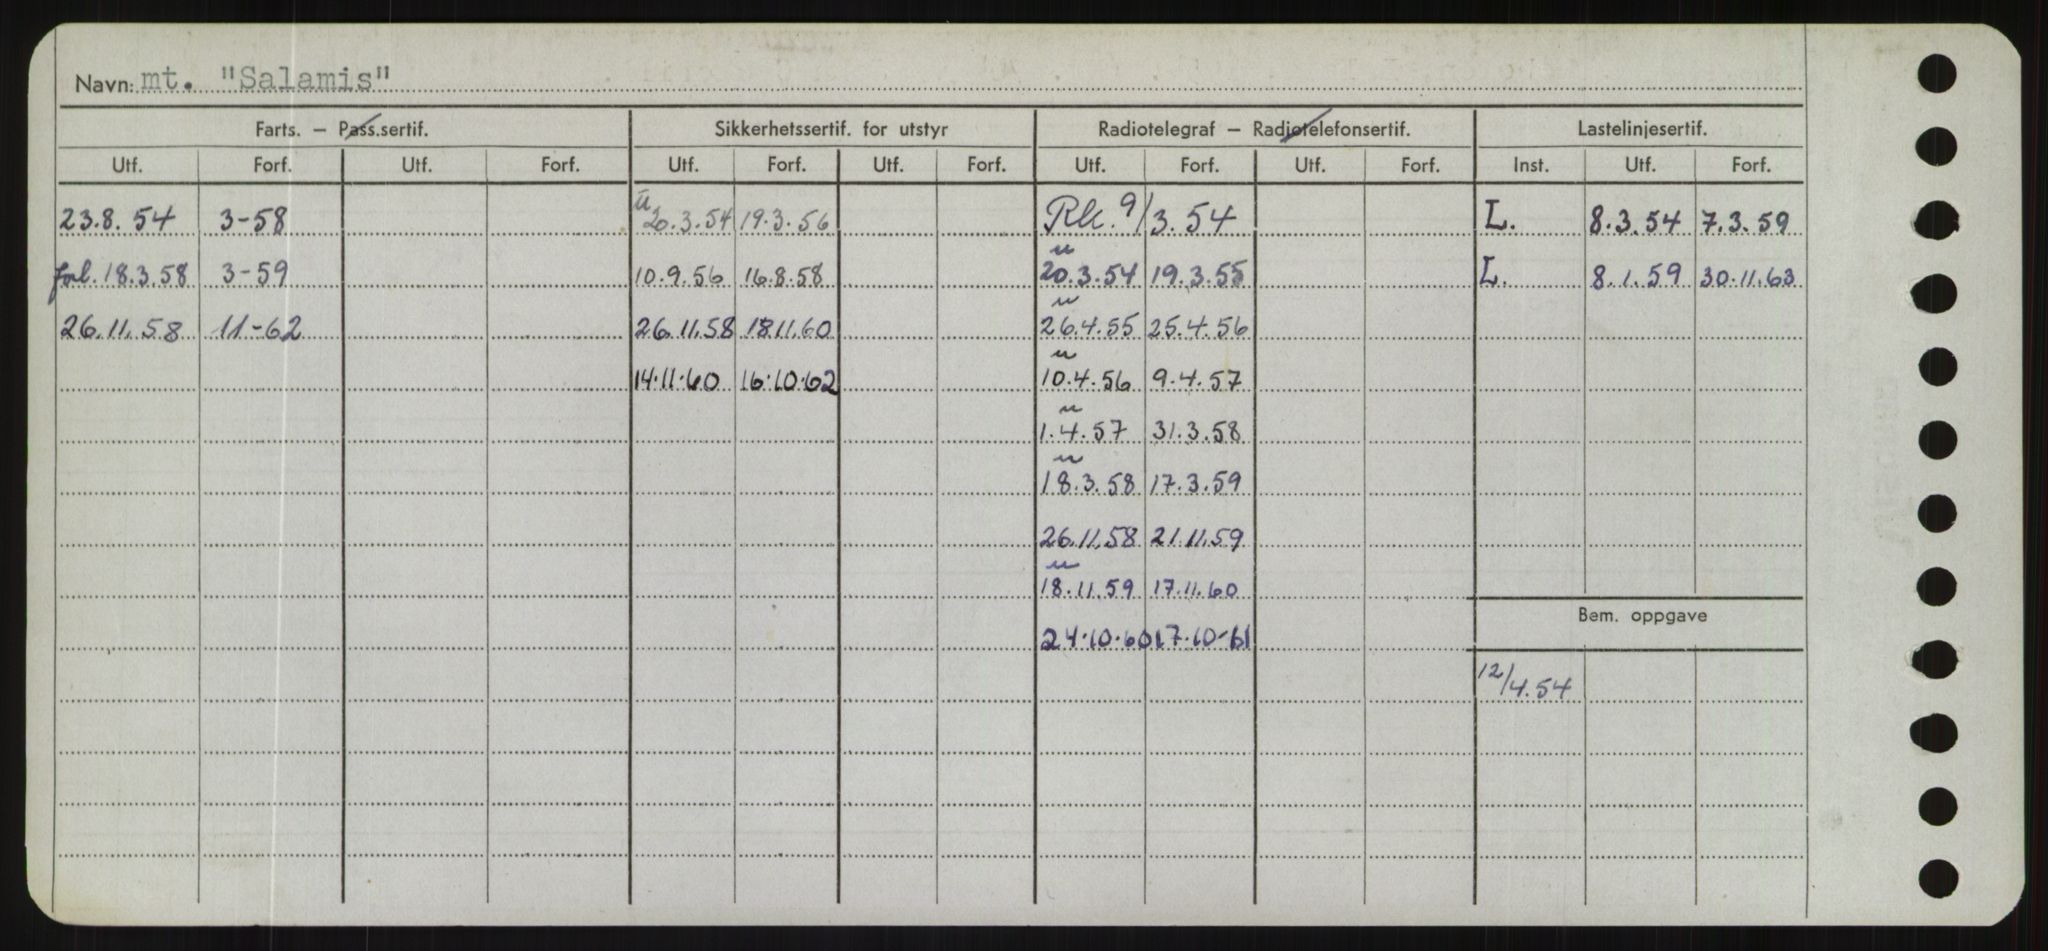 Navn: mt. "Salamis"
Farts. – Pass.sertif. Sikkerhetssertif. for utstyr Radiotelegraf – Radiotelefonsertif. Lastelinjesertif.
Utf. Forf. Utf. Forf. Utf. Forf. Utf. Forf. Utf. Forf. Utf. Forf. Inst. Utf. Forf.
23.8.54 3-58 u 20.3.54 19.3.56 Rk. 9/3.54 L. 8.3.54 7.3.59
u
forl. 18.3.58 3-59 10.9.56 16.8.58 20.3.54 19.3.55 L. 8.1.59 30.11.63
u
26.11.58 11-62 26.11.58 18.11.60 26.4.55 25.4.56
u
14.11.60 16.10.62 10.4.56 9.4.57
u
1.4.57 31.3.58
u
18.3.58 17.3.59
26.11.58 21.11.59
u
18.11.59 17.11.60
Bem. oppgave
24.10.60 17.10-61
12/4.54